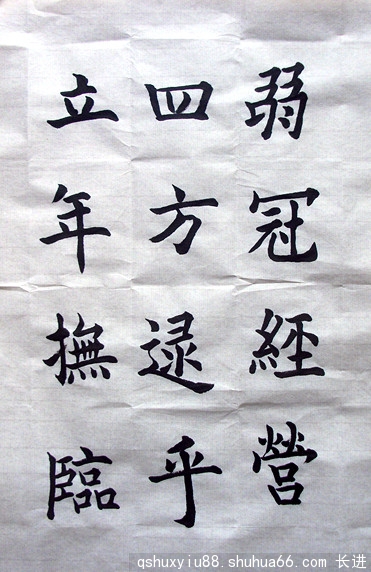 弱冠經營
四方逯乎
立年撫臨
qshuxyiu88.shuhua66.com 长进